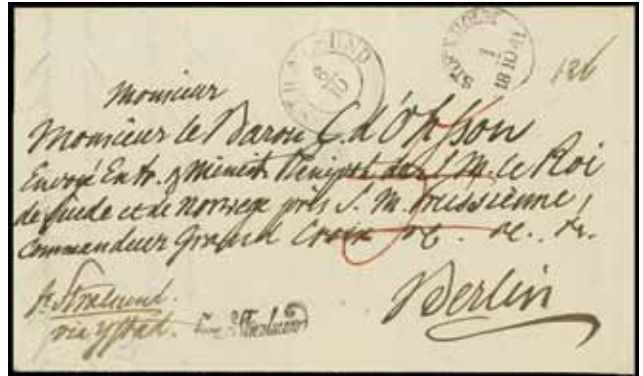 STRALSUND
8/10
STOCKHOLM
1
126
Monsieur
Monsieur le Baron C. d'Ohsson
Envoyé Extr. & Ministr Plenipot de S. M. le Roi
de Suede et de Norwege près S. M. Prussienne,
Commandeur Grand Croix &c. &c. &c.
Berlin
pr Stralsund.
via Ystad.
Stralsund